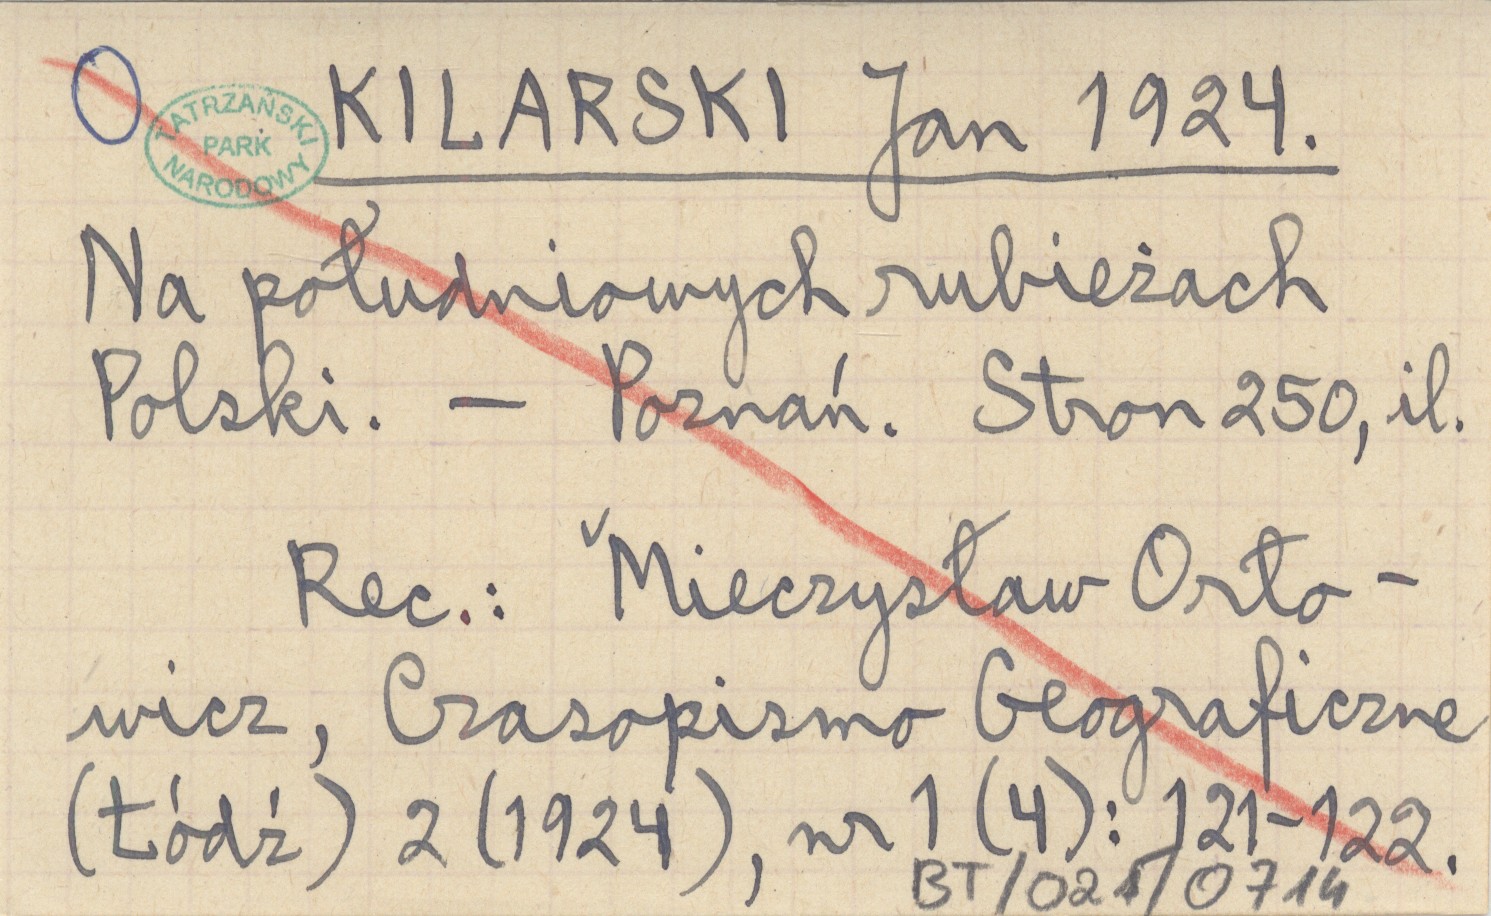 TATRZAŃSKI PARK NARODOWY
KILARSKI Jan 1924.
Na południowych rubieżach
Polski. — Poznań. Stron 250, il.
Rec.: Mieczysław Orło-
wicz, Czasopismo Geograficzne
(Łódź) 2 (1924), nr 1 (4): 121-122.
BT/021/0714